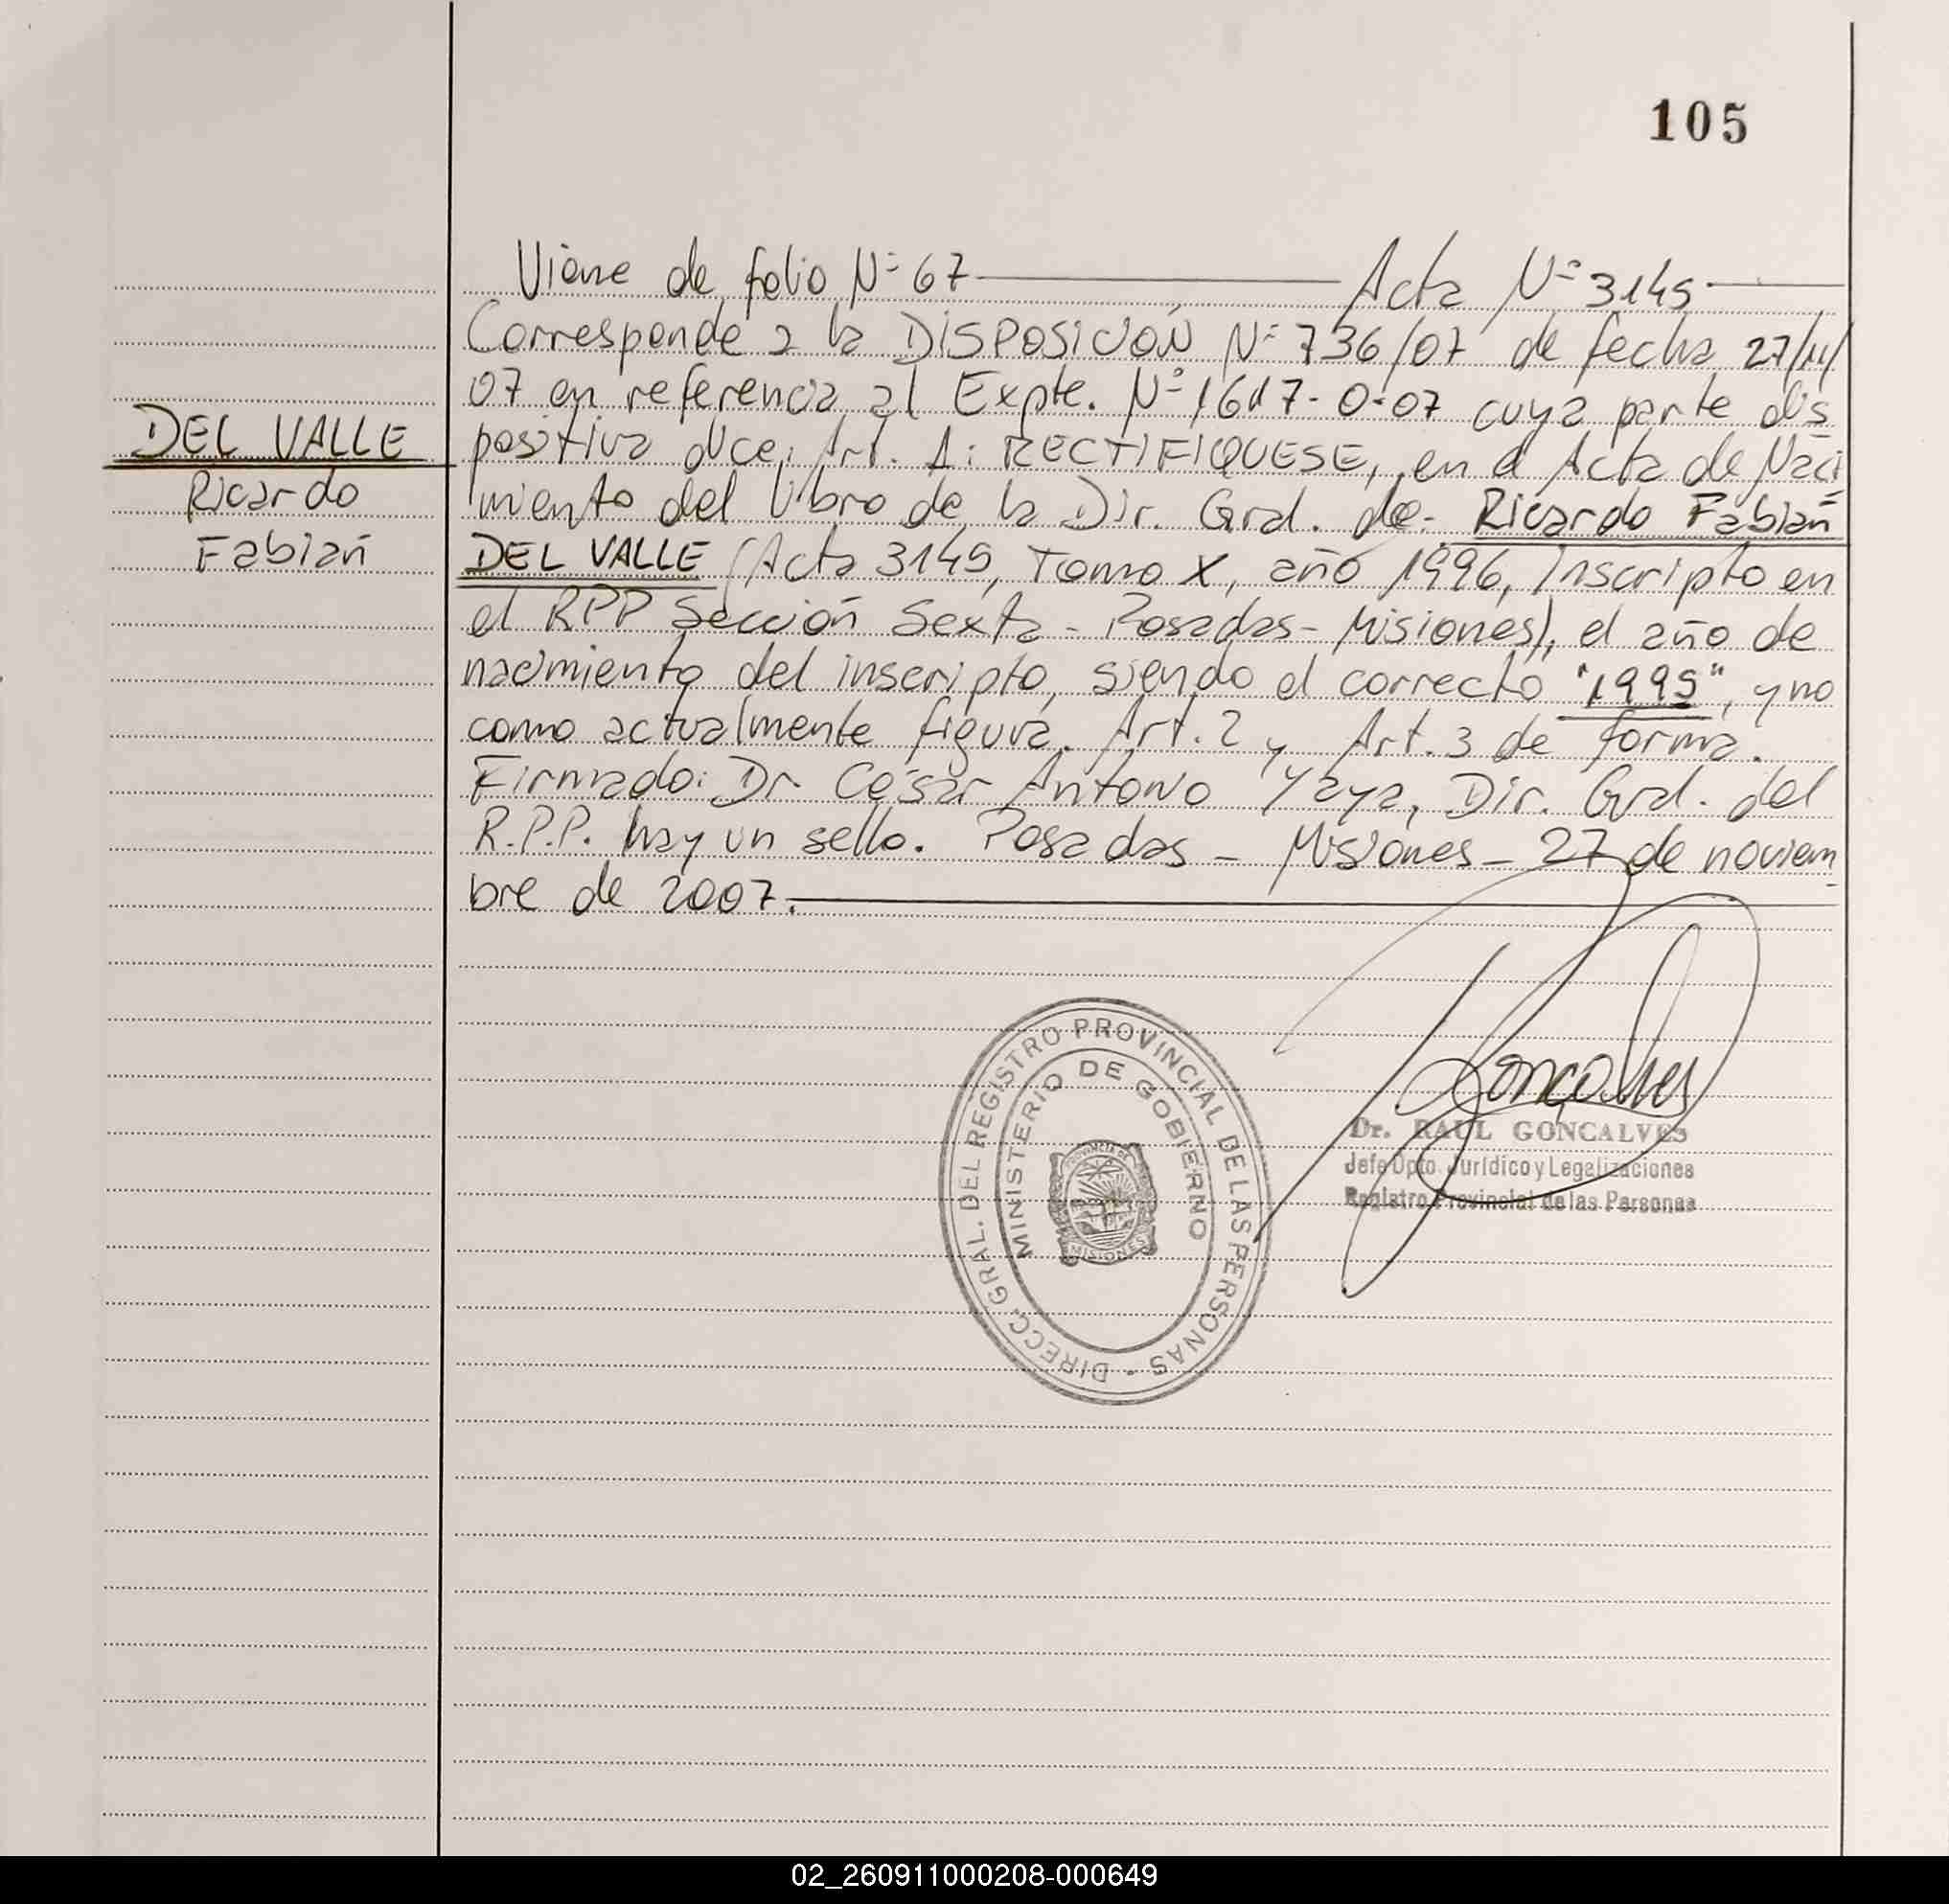 105
Viene de folio Nº 67 Acta Nº 3145.
Corresponde a la DISPOSICIÓN Nº 736/07 de fecha 27/11/
07 en referencia al Expte. Nº 1617-0-07 cuya parte dis
DEL VALLE
positiva dice: Art. 1: RECTIFIQUESE, en el Acta de Naci
Ricardo
miento del libro de la Dir. Gral. de: Ricardo Fabián
Fabián
DEL VALLE (Acta 3145, Tomo X, año 1996, Inscripto en
el RPP Sección Sexta - Posadas - Misiones), el año de
nacimiento del inscripto, siendo el correcto "1995", y no
como actualmente figura. Art. 2 y Art. 3 de forma.
Firmado: Dr. César Antonio Yaya, Dir. Gral. del
R.P.P. hay un sello. Posadas - Misiones - 27 de noviem
bre de 2007.
DIRECC. GRAL. DEL REGISTRO PROVINCIAL DE LAS PERSONAS -
MINISTERIO DE GOBIERNO
PROVINCIA DE
MISIONES
Gonçalves
Dr. RAUL GONÇALVES
Jefe Dpto. Jurídico y Legalizaciones
Registro Provincial de las Personas
02_260911000208-000649